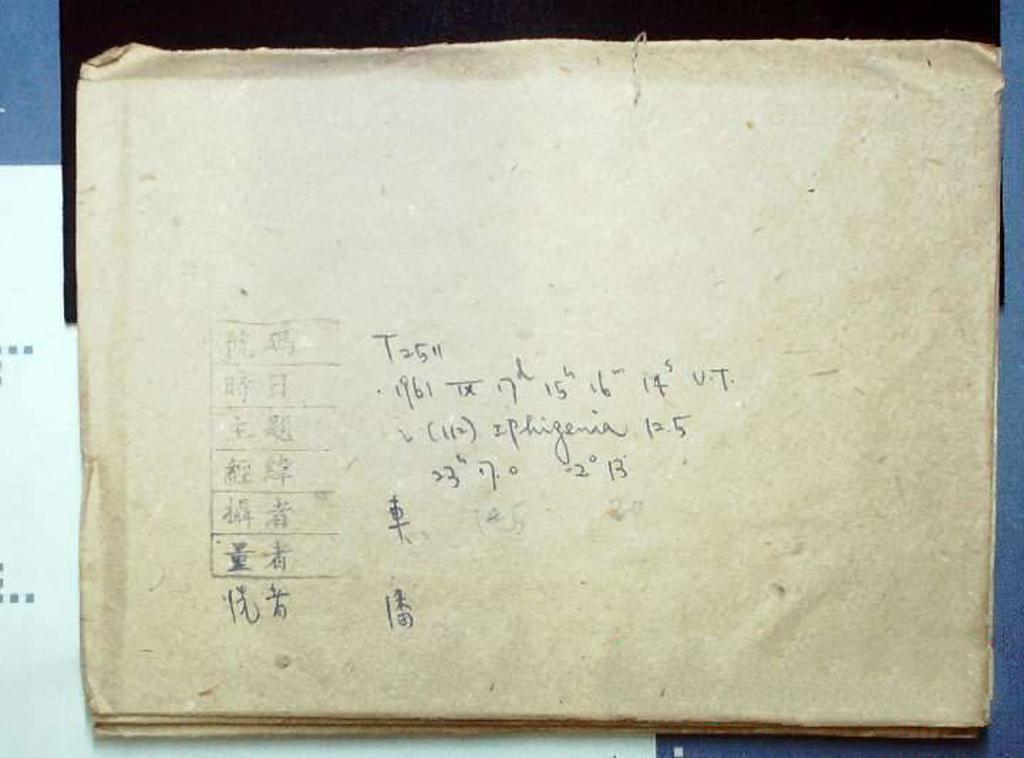 號碼 T2511
時日 1961 IX 17ᵈ 15ʰ 16ᵐ 14ˢ U.T.
主題 (112) Iphigenia 12.5
經緯 23ʰ 17.0 -2° 13'
攝者
量者